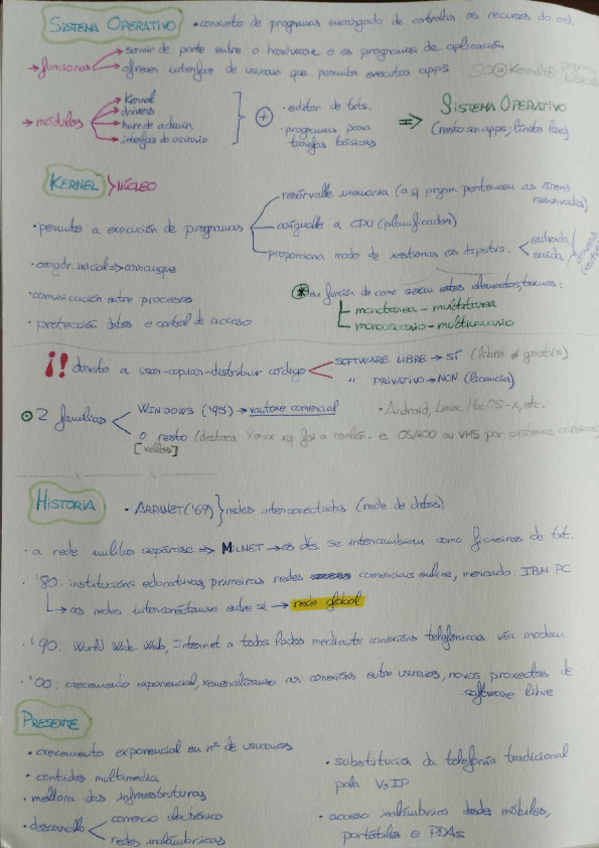 SISTEMA OPERATIVO • conxunto de programas encargado de controlar os recursos do ord.
→ funciones → servir de ponte entre o hardware e os programas de aplicación
→ ofrecer interface de usuario que permita executar apps
SO = Kernel + prgrm. básicos
→ módulos → Kernel
→ drivers
→ interface do usuario
+ • editor de txts.
• programas para tarefas básicas
⇒ SISTEMA OPERATIVO
KERNEL } NÚCLEO
• permite a execución de programas
resérvalle memoria (a q prgrm. pertencen as áreas reservadas)
asígnalle a CPU (planificador)
proporciona modo de xestionar os dispositiv. < entrada / saída
• cargdr. inicial ⇒ arranque
• comunicación entre procesos
• protección dtos e control de acceso
* en función de como sexan estes elementos, temos:
monotarea - multitarea
monousuario - multiusuario
¡¡ dereito a usar-copiar-distribuír código
SOFTWARE LIBRE → SÍ (libre ≠ gratis)
" PRIVATIVO → NON (licencia)
2 familias < WINDOWS ('95) → vantaxe comercial
• Android, Linux, MacOS-X, etc.
O resto (destaca Xenix xq foi a revluc. e OS/400 ou VMS por sistemas críticos)
[vellos]
HISTORIA • ARPANET ('69) } redes interconectadas (rede de datos)
• a rede militar sepárase ⇒ MILNET → os dts se intercambian como ficheiros de txt.
• '80: institucións educativas, primeiras redes comerciais online, mercado: IBM PC
↳ as redes interconéctanse entre si → rede global
• '90: World Wide Web, Internet a todos lados mediante conexións telefónicas vía modem
• '00: crecemento exponencial, xeneralízanse as conexións entre usuarios, novos proxectos de
software libre
PRESENTE
• crecemento exponencial en nº de usuarios
• contidos multimedia
• mellora das infraestruturas
• desenrollo < comercio electrónico
redes inalámbricas
• substitución da telefonía tradicional
pola VoIP
• acceso inalámbrico desde móbiles,
portátiles e PDAs